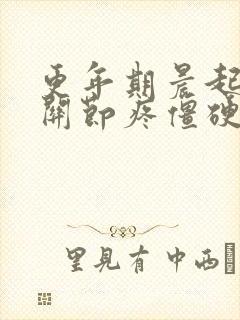 更年期晨起
關節疼僵硬
里見有中西